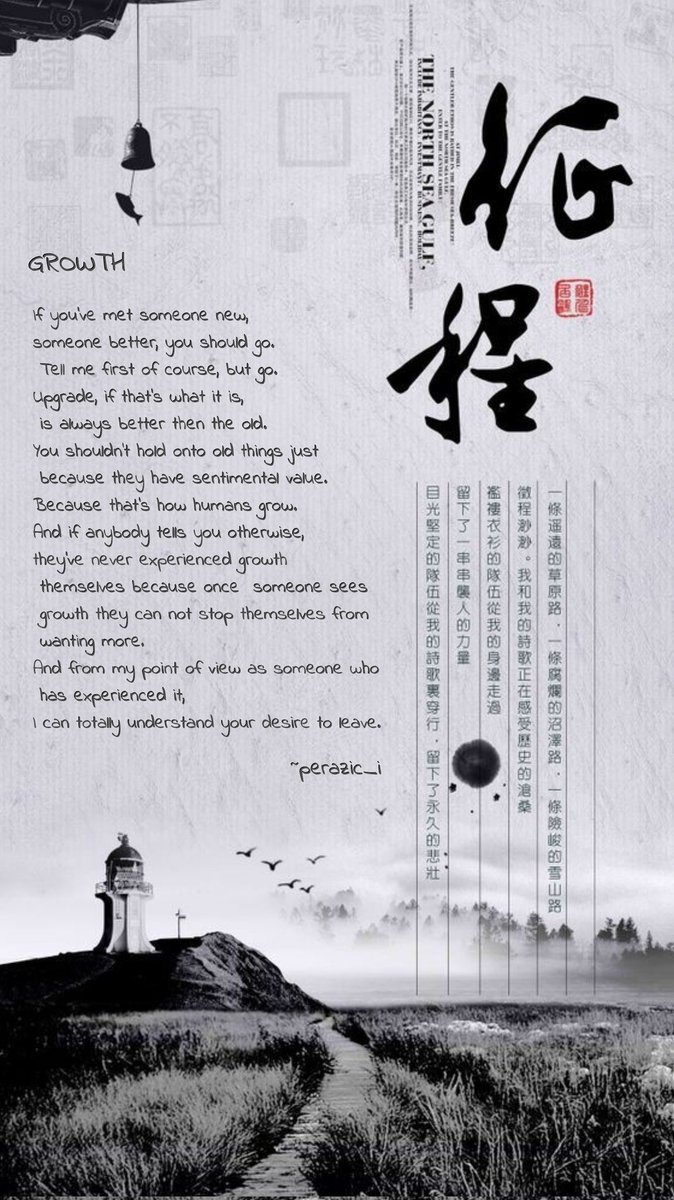 征程
THE NORTH SEA GULF,
GROWTH
If you've met someone new,
someone better, you should go.
Tell me first of course, but go.
Upgrade, if that's what it is,
is always better then the old.
You shouldn't hold onto old things just
because they have sentimental value.
Because that's how humans grow.
And if anybody tells you otherwise,
they've never experienced growth
themselves because once someone sees
growth they can not stop themselves from
wanting more.
And from my point of view as someone who
has experienced it,
I can totally understand your desire to leave.
~perazic_i
一條遥遠的草原路．一條腐爛的沼澤路．一條險峻的雪山路
徵程渺渺。我和我的詩歌正在感受歷史的滄桑
襤褸衣衫的隊伍從我的身邊走過
留下了一串串襲人的力量
目光堅定的隊伍從我的詩歌裏穿行．留下了永久的悲壯